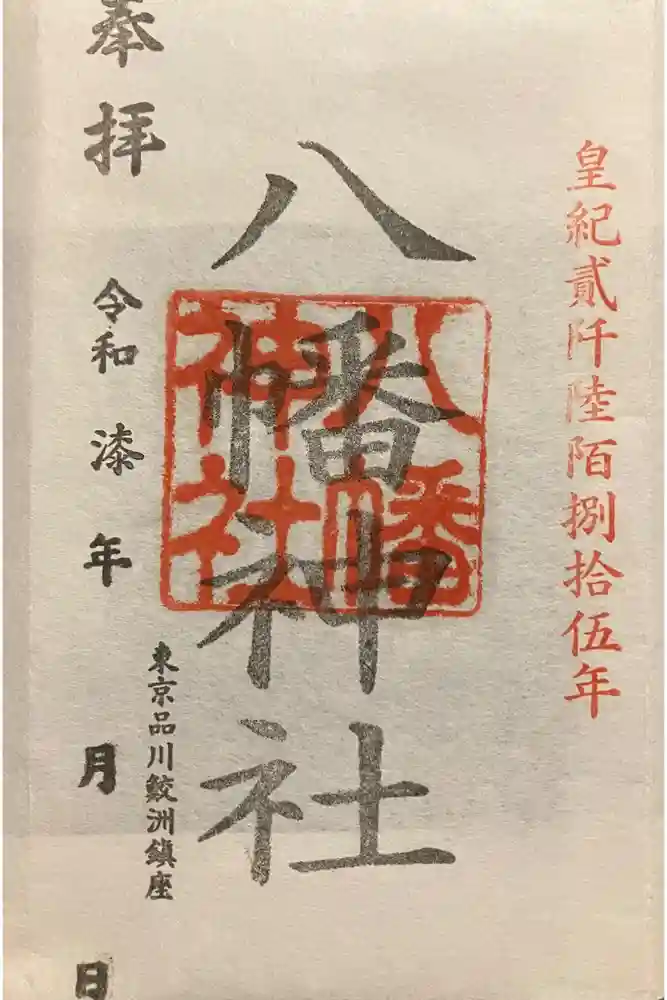 皇紀貳阡陸陌捌拾伍年
八幡神社
八幡
神社
東京品川鮫洲鎮座
奉拝
令和漆年月日